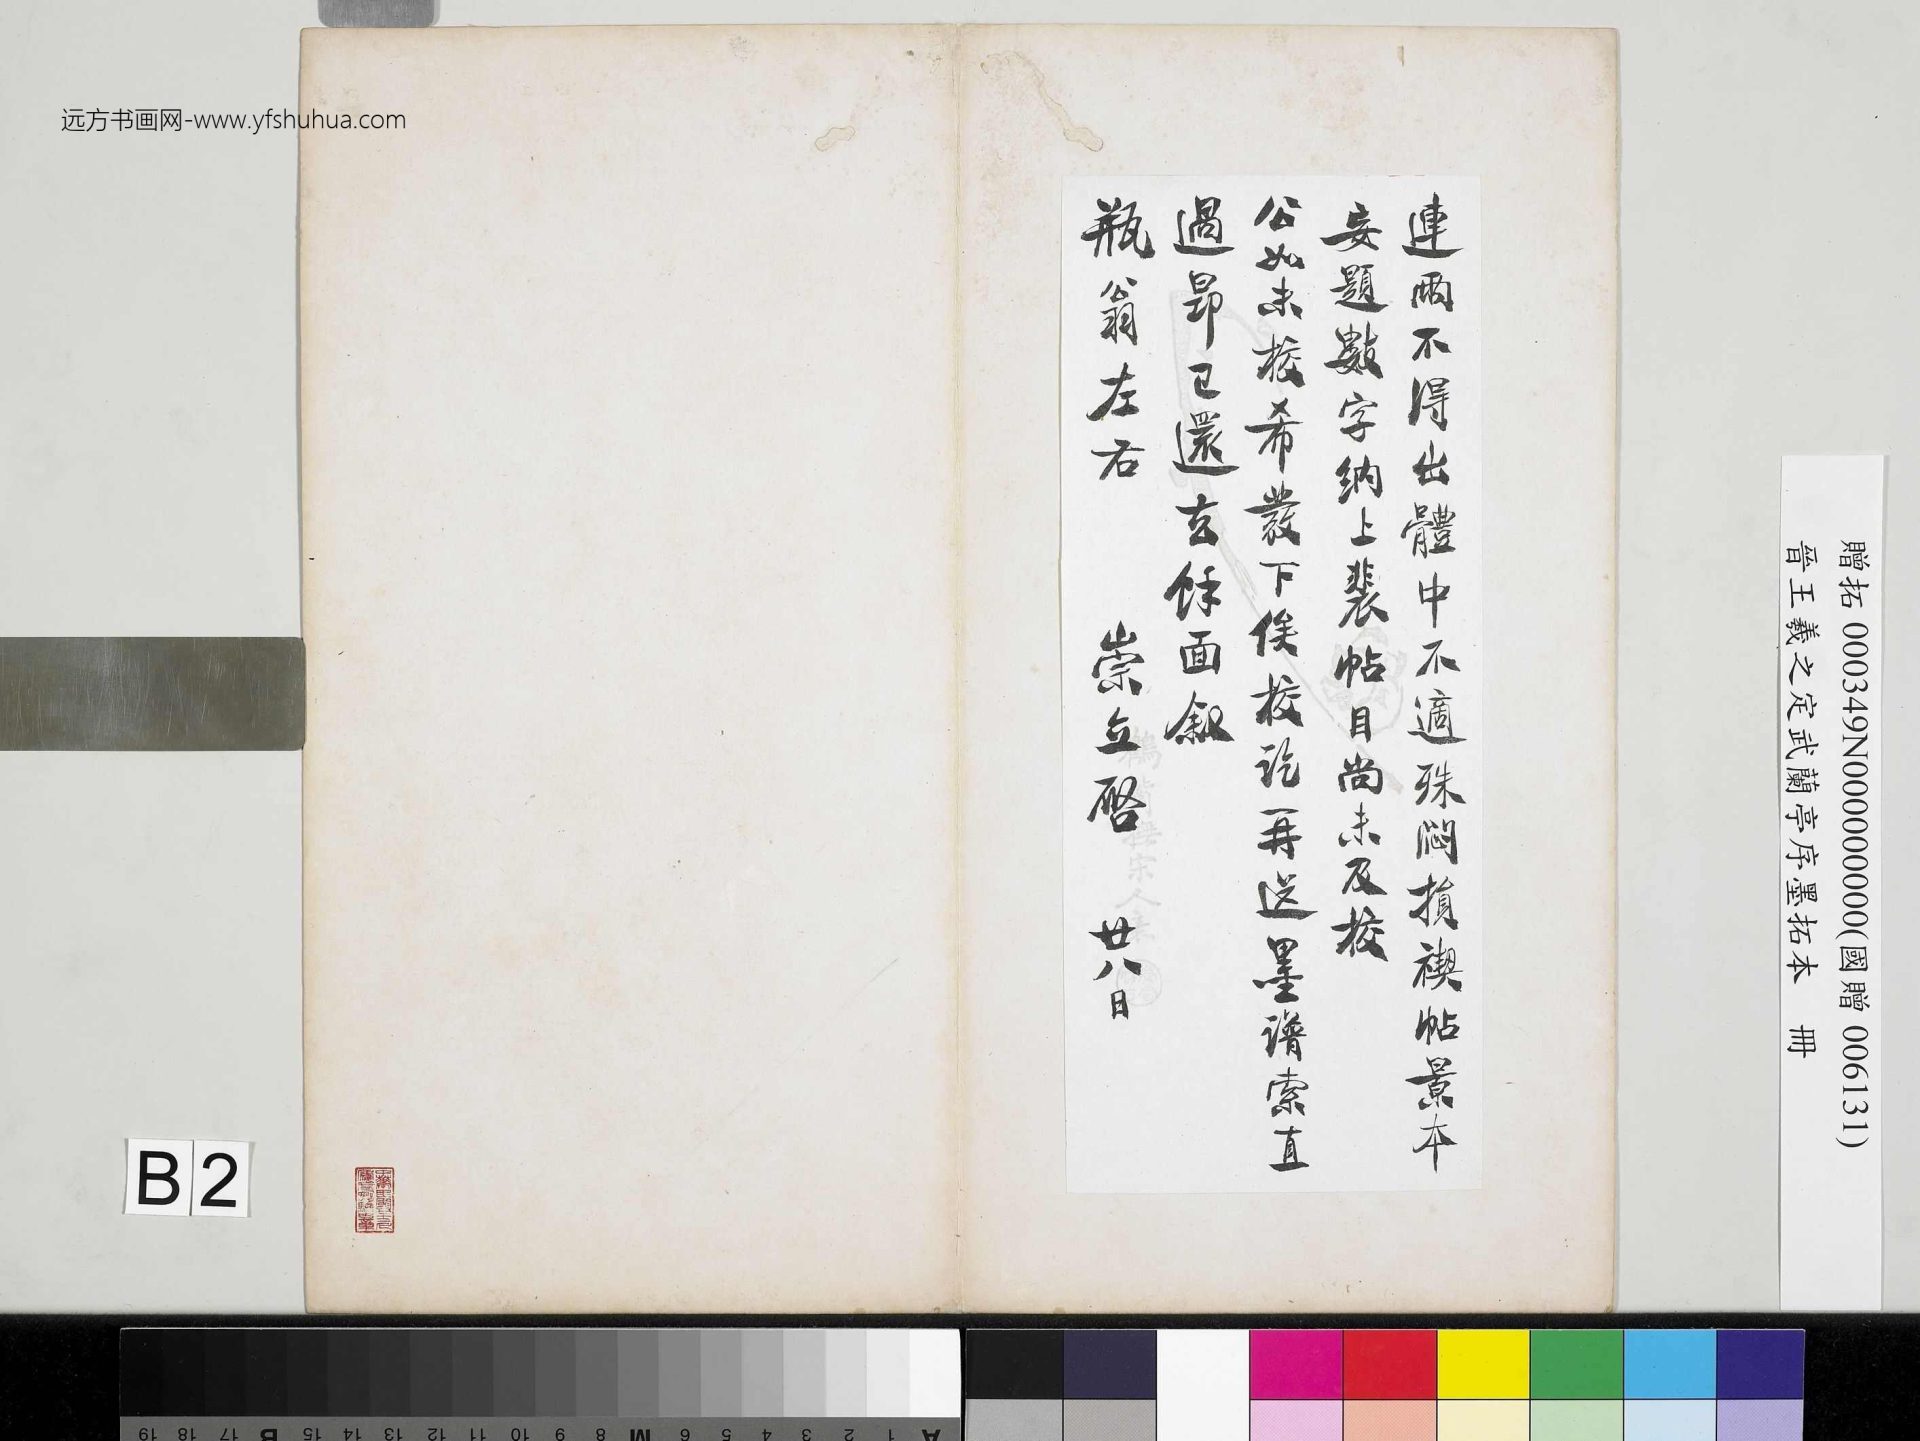 远方书画网-www.yfshuhua.com
連雨不得出體中不適殊悶損禊帖景本
妄題數字納上裴帖目尚未及校
公如未校希發下俟校訖再送墨譜索直
過昂已還去餘面敘
瓶翁左右 崇立啓 廿八日
贈拓 000349N000000000(國贈 006131)
晉王羲之定武蘭亭序墨拓本 冊
B2
19 18 17 B 15 14 13 12 11 10 9 8 M 6 5 4 3 2 1 A